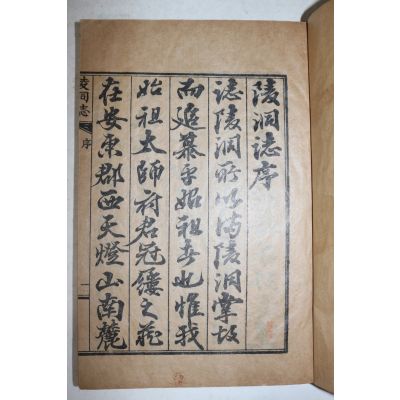 陵洞誌序
誌陵洞所以備陵洞掌故
而追慕乎始祖者也惟我
始祖太師府君冠履之藏
在安東郡西天燈山南麓
陵洞志 序